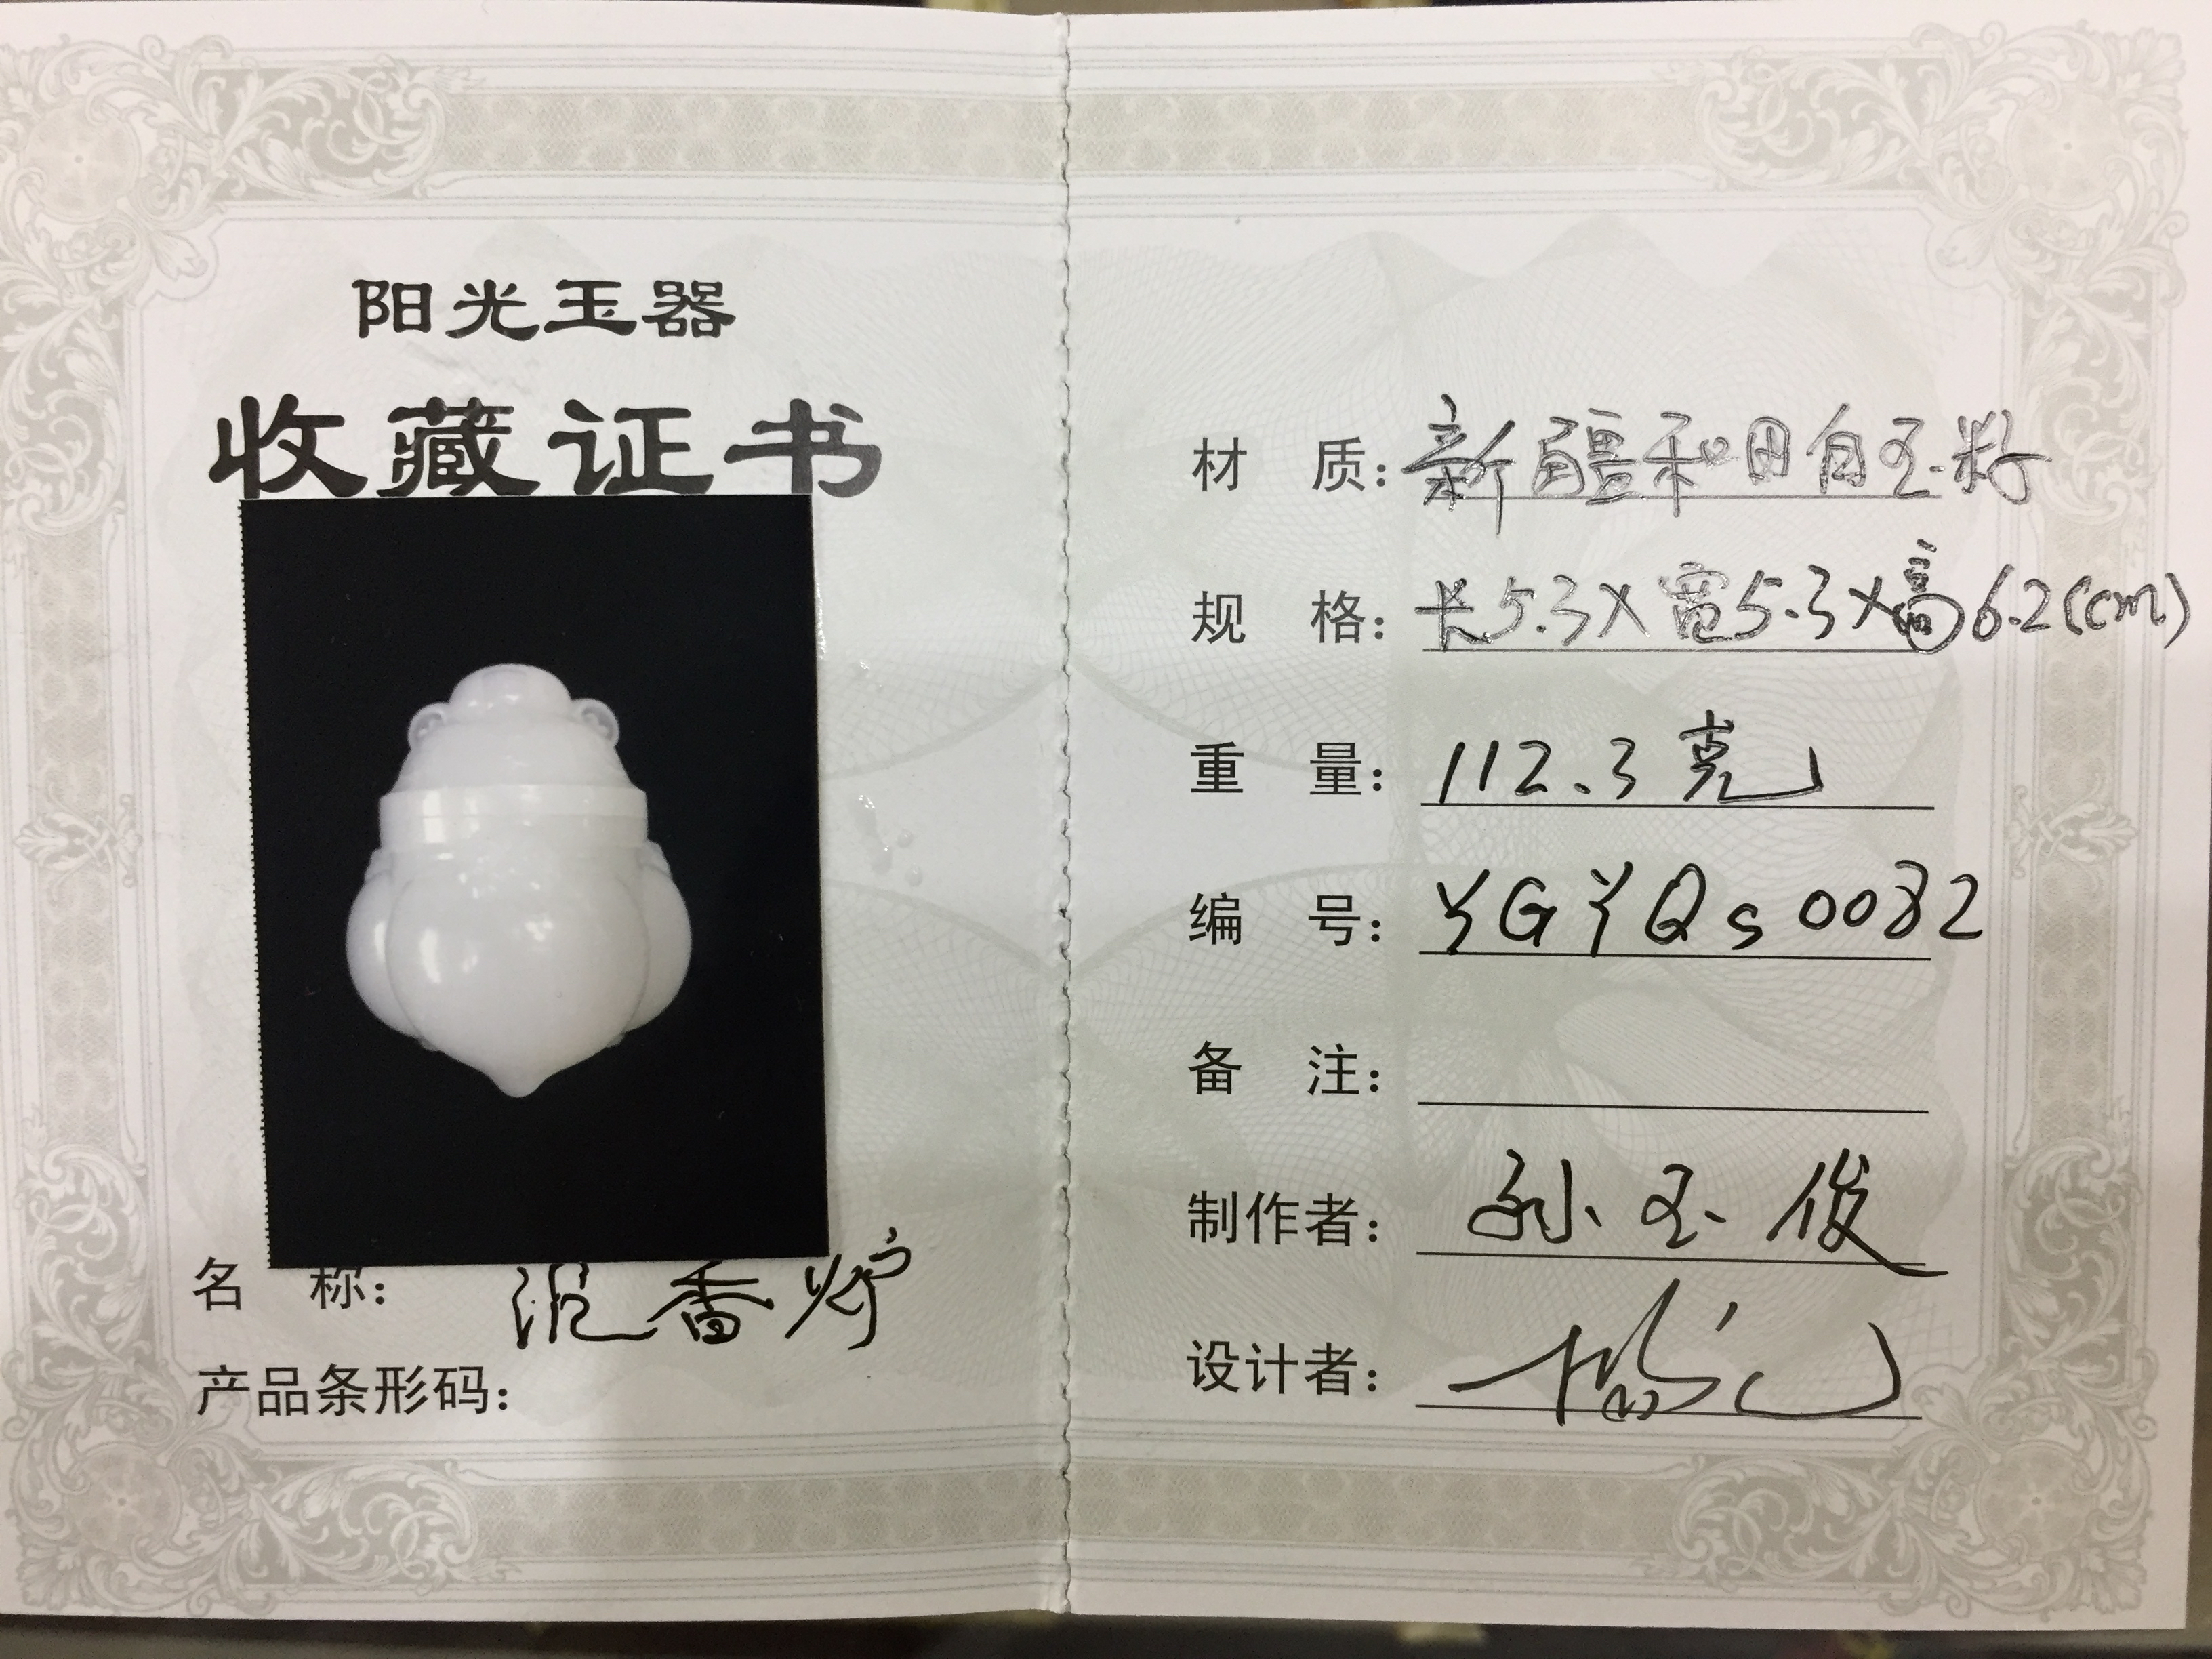 阳光玉器
收藏证书
名 称: 香炉
产品条形码:
材 质: 新疆和田白玉籽
规 格: 长5.3X宽5.3X高6.2(cm)
重 量: 112.3克
编 号: YGYQs0082
备 注:
制作者: 孙玉俊
设计者: